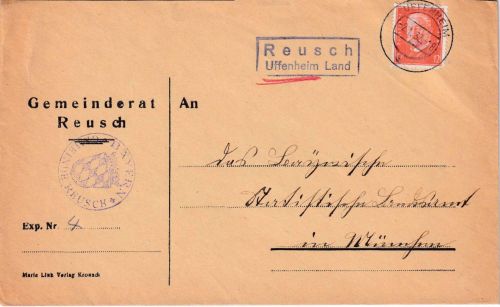 Reusch
Uffenheim Land
UFFENHEIM
Gemeinderat
Reusch
An
BAYERN
REUSCH
das Bayrische
Statistische Landesamt
in München
Exp. Nr. 4
Marie Link Verlag Kronach